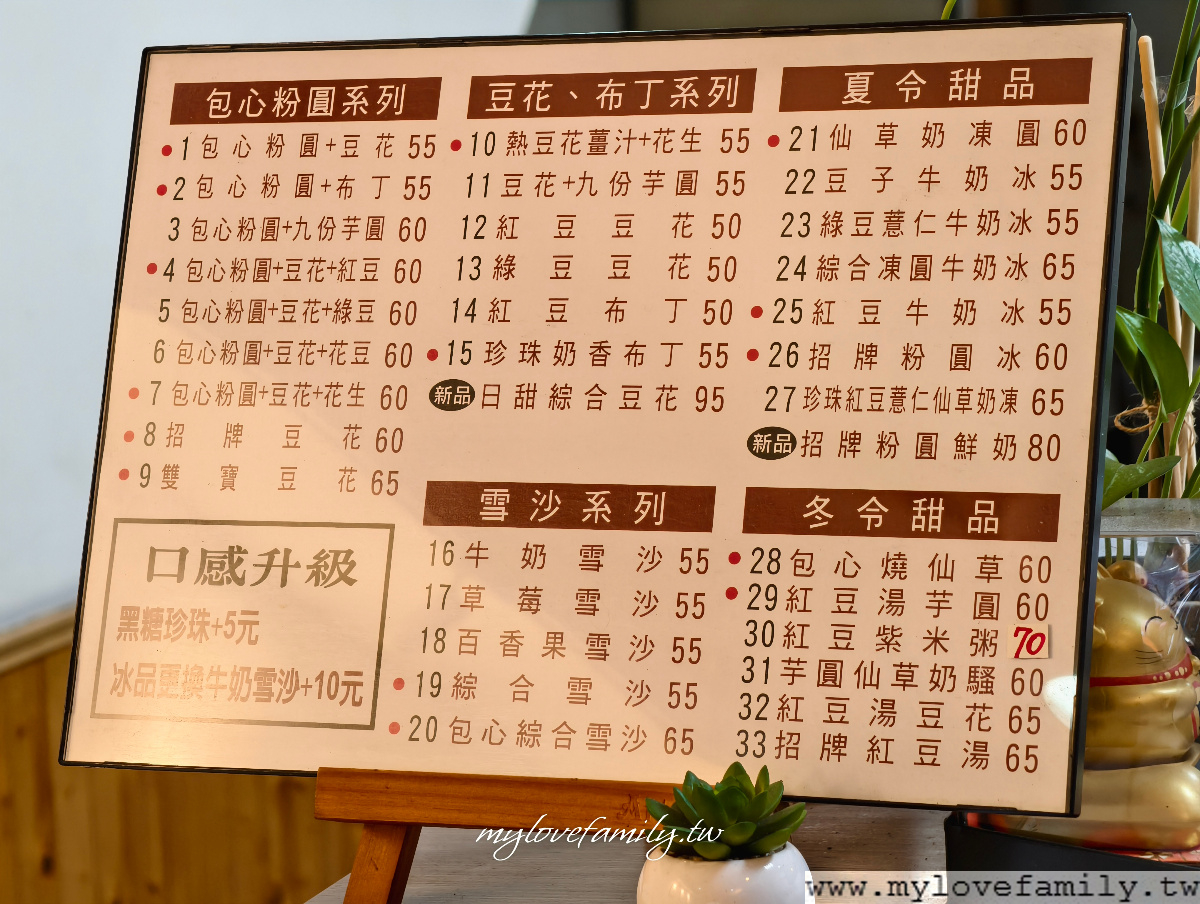 包心粉圓系列
1 包心粉圓+豆花 55
2 包心粉圓+布丁 55
3 包心粉圓+九份芋圓 60
4 包心粉圓+豆花+紅豆 60
5 包心粉圓+豆花+綠豆 60
6 包心粉圓+豆花+花豆 60
7 包心粉圓+豆花+花生 60
8 招牌豆花 60
9 雙寶豆花 65
口感升級
黑糖珍珠+5元
冰品更換牛奶雪沙+10元
豆花、布丁系列
10 熱豆花薑汁+花生 55
11 豆花+九份芋圓 55
12 紅豆豆花 50
13 綠豆豆花 50
14 紅豆布丁 50
15 珍珠奶香布丁 55
新品 日甜綜合豆花 95
雪沙系列
16 牛奶雪沙 55
17 草莓雪沙 55
18 百香果雪沙 55
19 綜合雪沙 55
20 包心綜合雪沙 65
夏令甜品
21 仙草奶凍圓 60
22 豆子牛奶冰 55
23 綠豆薏仁牛奶冰 55
24 綜合凍圓牛奶冰 65
25 紅豆牛奶冰 55
26 招牌粉圓冰 60
27 珍珠紅豆薏仁仙草奶凍 65
新品 招牌粉圓鮮奶 80
冬令甜品
28 包心燒仙草 60
29 紅豆湯芋圓 60
30 紅豆紫米粥 70
31 芋圓仙草奶騷 60
32 紅豆湯豆花 65
33 招牌紅豆湯 65
mylovefamily.tw
www.mylovefamily.tw